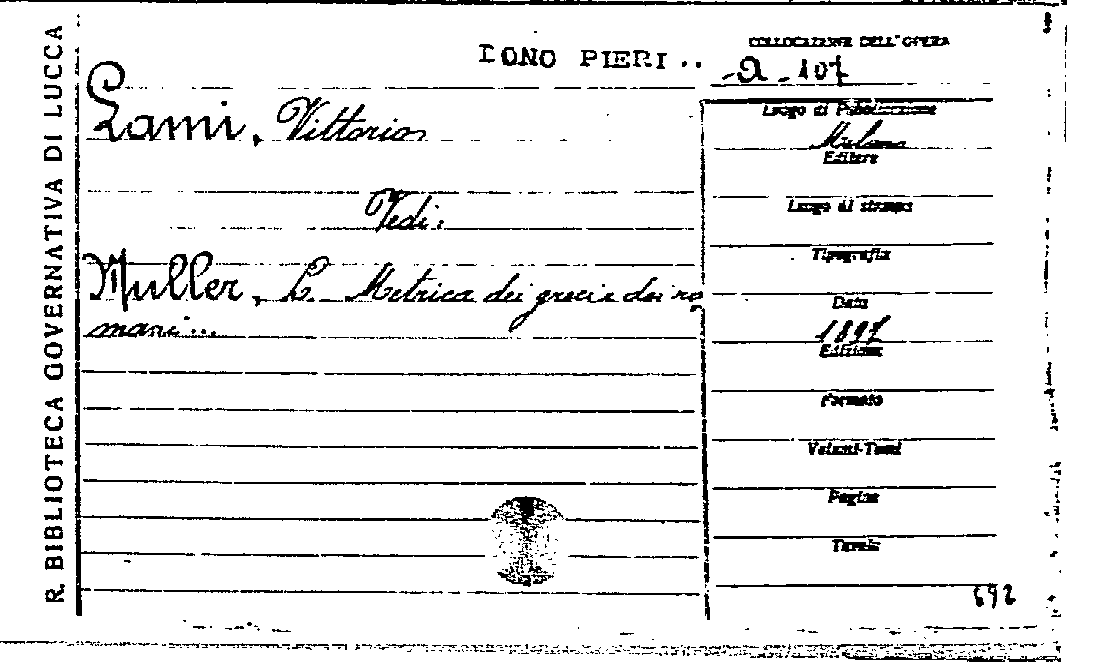 R. BIBLIOTECA GOVERNATIVA DI LUCCA
DONO PIERI..
COLLOCAZIONE DELL'OPERA
-A-107
Lami, Vittorio
Vedi:
Muller, L. Metrica dei greci e dei ro
mani...
Luogo di Pubblicazione
Milano
Editore
Luogo di stampa
Tipografia
Data
1897
Edizione
Formato
Volumi-Tomi
Pagine
Tavole
692